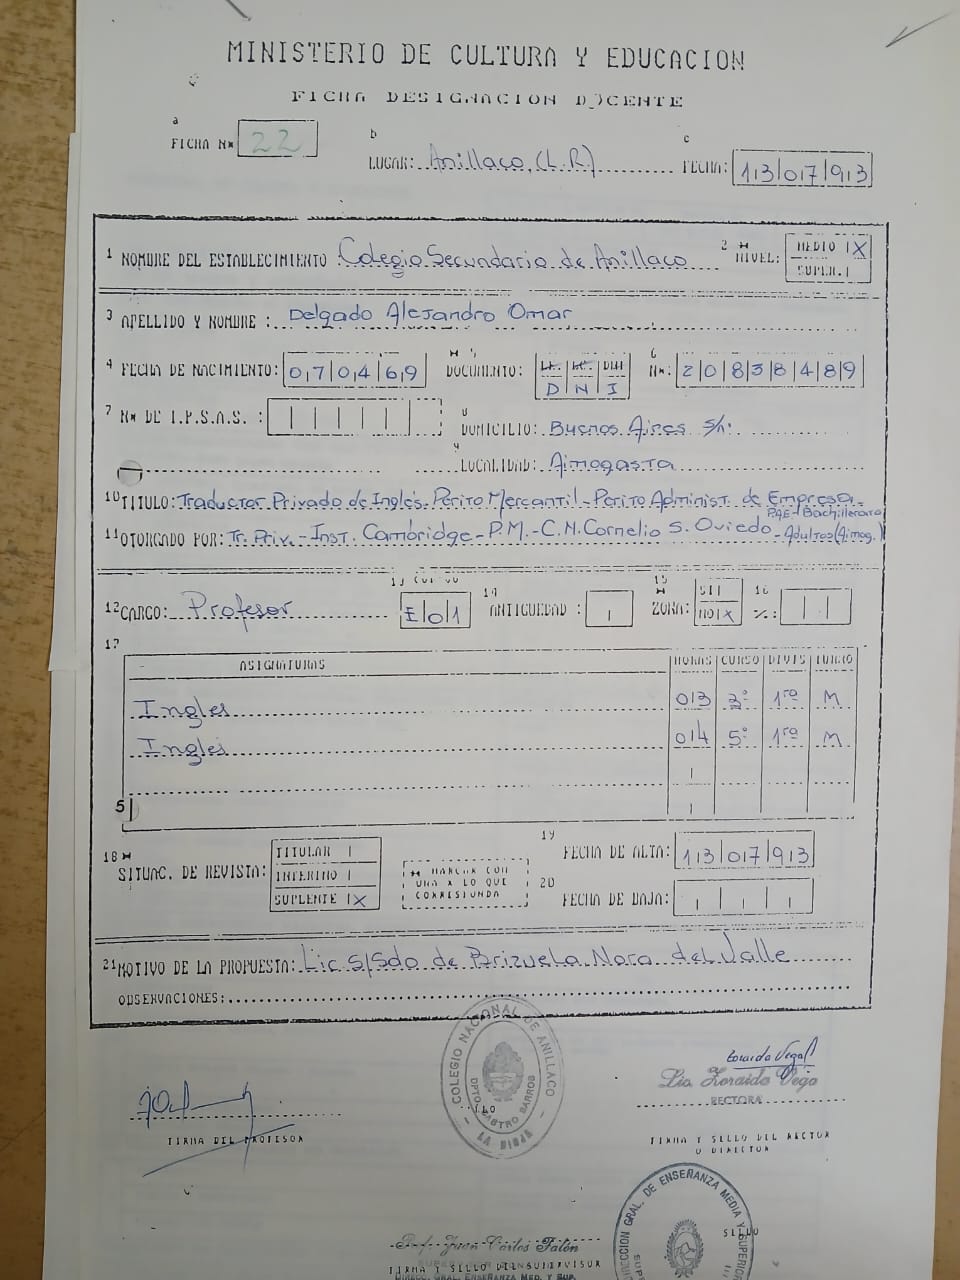 MINISTERIO DE CULTURA Y EDUCACION
FICHA DESIGNACION DOCENTE
a
FICHA Nº 22
b
LUGAR: Anillaco, (L.R.)
c
FECHA: 13|07|93
1 NOMBRE DEL ESTABLECIMIENTO Colegio Secundario de Anillaco
2 * NIVEL: MEDIO | X
SUPER. |
3 APELLIDO Y NOMBRE: Delgado Alejandro Omar
4 FECHA DE NACIMIENTO: 07|04|69
* 5 DOCUMENTO: D N I
6 Nº: 20838489
7 Nº DE I.P.S.A.S.:
8 DOMICILIO: Buenos Aires s/n.
9 LOCALIDAD: Aimogasta
10 TITULO: Traductor Privado de Inglés-Perito Mercantil-Perito Administ. de Empresa-
PAE-Bachillerato
11 OTORGADO POR: Tr. Priv.-Inst. Cambridge-P.M.-C.N. Cornelio S. Oviedo-Adultos (Aimog.)
12 CARGO: Profesor
13
E|0|1
14 ANTIGUEDAD:
15 * ZONA: SI |
NO | X
16 %:
17
ASIGNATURAS HORAS CURSO DIVIS TURNO
Ingles 03 1ra M
Ingles 04 5º 1ra M
5
18 * SITUAC. DE REVISTA: TITULAR |
INTERINO |
SUPLENTE | X
* MARCAR CON
UNA X LO QUE
CORRESPONDA
19 FECHA DE ALTA: 13|07|93
20 FECHA DE BAJA:
21 MOTIVO DE LA PROPUESTA: Lic. S/Sdo de Brizuela Nora del Valle
OBSERVACIONES:
COLEGIO NACIONAL DE ANILLACO
DPTO. CASTRO BARROS
- LA RIOJA -
Lic. Zoraida Vega
RECTORA
FIRMA DEL PROFESOR
FIRMA Y SELLO DEL RECTOR
O DIRECTOR
DIRECCION GRAL. DE ENSEÑANZA MEDIA Y SUPERIOR
SELLO
Prof. Juan Carlos Falón
FIRMA Y SELLO DEL SUPERVISOR
DIREC. GRAL. ENSEÑANZA MED. Y SUP.